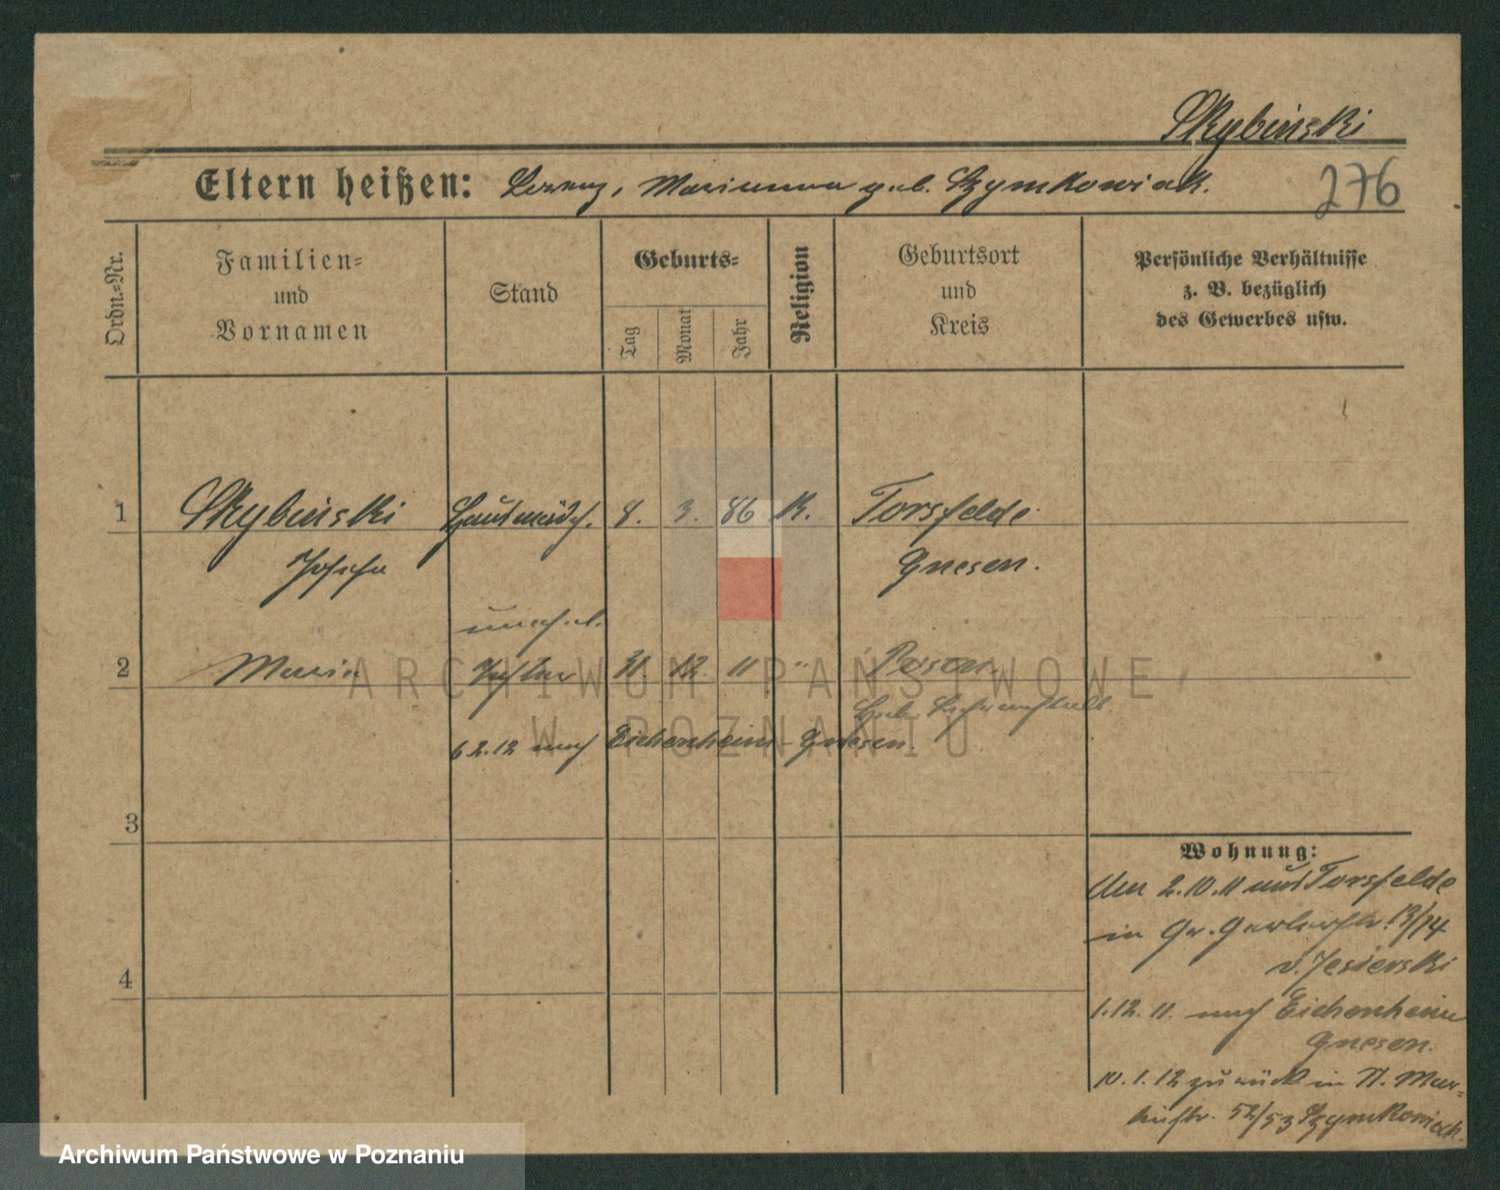 Skybinski
Eltern heißen: Lorenz, Marianna geb. Szymkowiak.
276
Ordn.-Nr.
Familien-
und
Vornamen
Stand
Geburts-
Tag
Monat
Jahr
Religion
Geburtsort
und
Kreis
Persönliche Verhältnisse
z. B. bezüglich
des Gewerbes usw.
1 Skybinski Hausmädch. 8. 3. 86 K. Torsfelde
Josefa Gnesen.
unehel.
2 Maria Tochter 31. 12. 11 " Posen
Heb.
6 2. 12 nach Eichenheim-Gnesen
3
4
Wohnung:
Am 2.10.11 aus Torsfelde
in Gr. Gerberstr. 13/14
b. Jesierski
1.12.11. nach Eichenheim
Gnesen.
10.1.12 zurück in N. Mar-
kustr. 52/53 Szymkowiak.
ARCHIWUM PAŃSTWOWE
W POZNANIU
Archiwum Państwowe w Poznaniu